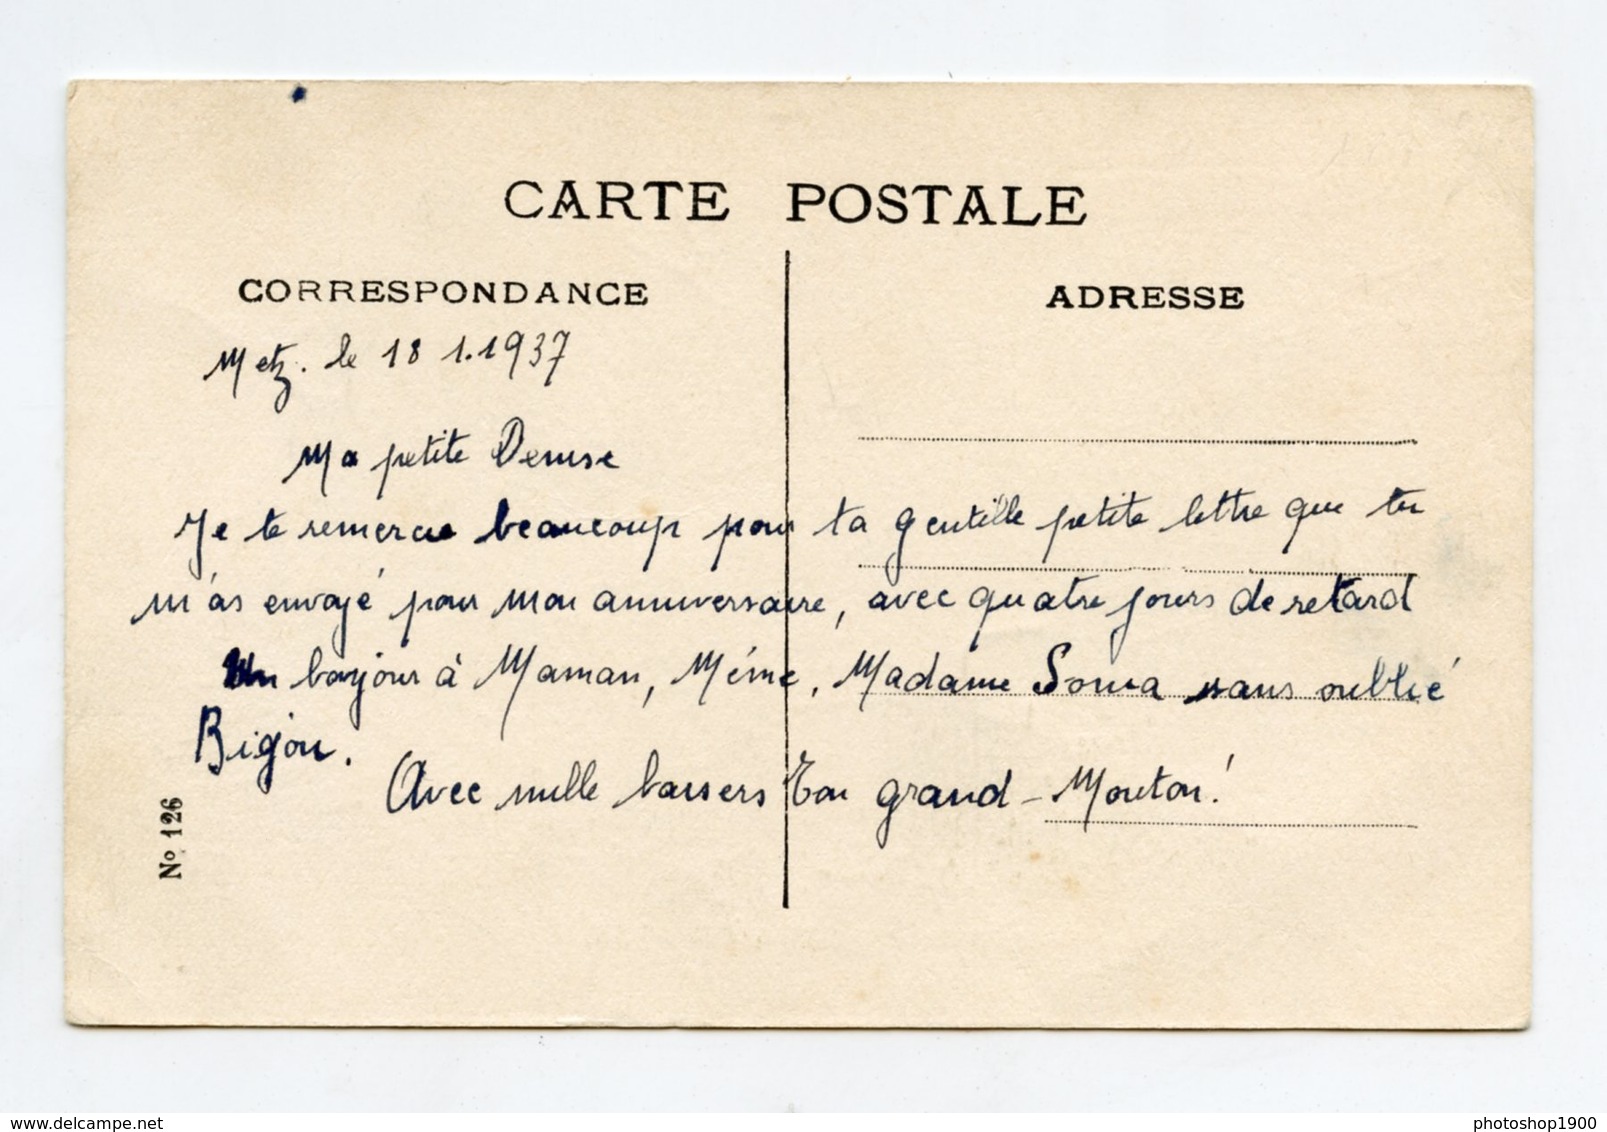 CARTE POSTALE
CORRESPONDANCE
ADRESSE
Metz. le 18 1.1937
Ma petite Denise
Je te remercie beaucoup pour ta gentille petite lettre que tu
m'as envoyé pour mon anniversaire, avec quatre jours de retard
Un bonjour à Maman, Méme, Madame Sonia sans oublié
Bijou.
Avec mille baisers Ton grand - Mouton!
No 126
www.delcampe.net
photoshop1900